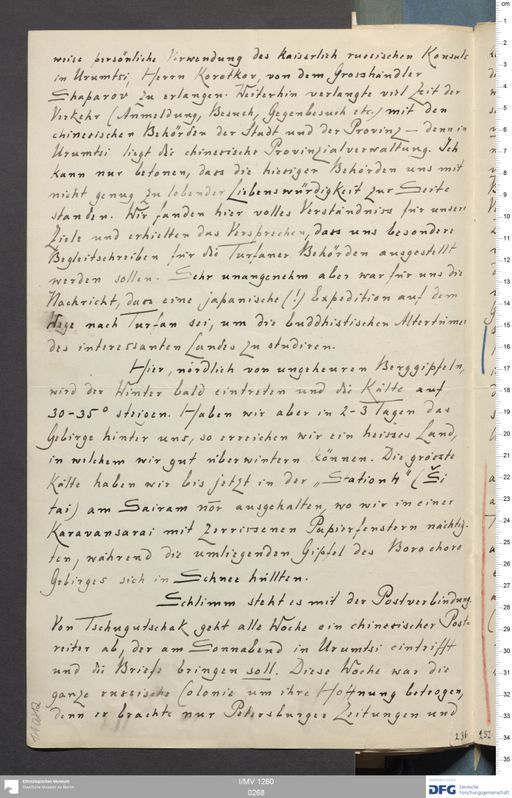 weise persönliche Verwendung des kaiserlich russischen Konsuls
in Urumtsi, Herrn Korotkov, von dem Grosshändler
Shaparov zu erlangen. Weiterhin verlangte viel Zeit der
Verkehr (Anmeldung, Besuch, Gegenbesuch etc.) mit den
chinesischen Behörden der Stadt und der Provinz – denn in
Urumtsi liegt die chinesische Provinzialverwaltung. Ich
kann nur betonen, dass die hiesigen Behörden uns mit
nicht genug zu lobender Liebenswürdigkeit zur Seite
standen. Wir fanden hier volles Verständniss für unsere
Ziele und erhielten das Versprechen, dass uns besondere
Begleitschreiben für die Turfaner Behörden ausgestellt
werden sollen. Sehr unangenehm aber war für uns die
Nachricht, dass eine japanische (!) Expedition auf dem
Wege nach Turfan sei, um die buddhistischen Altertümer
des interessanten Landes zu studiren.
Hier, nördlich von ungeheuren Berggipfeln,
wird der Winter bald eintreten und die Kälte auf
30-35° steigen. Haben wir aber in 2-3 Tagen das
Gebirge hinter uns, so erreichen wir ein heisses Land,
in welchem wir gut überwintern können. Die grösste
Kälte haben wir bis jetzt in der „Station 4" (Ši
tai) am Sairam nōr ausgehalten, wo wir in einer
Karavansarai mit zerrissenen Papierfenstern nächtig-
ten, während die umliegenden Gipfel des Borochoro
Gebirges sich in Schnee hüllten.
Schlimm steht es mit der Postverbindung.
Von Tschugutschak geht alle Woche ein chinesischer Post-
reiter ab, der am Sonnabend in Urumtsi eintrifft
und die Briefe bringen soll. Diese Woche war die
ganze russische Colonie um ihre Hoffnung betrogen,
denn er brachte nur Petersburger Zeitungen und
236
253
Ethnologisches Museum
Staatliche Museen zu Berlin
I/MV 1260
0268
DFG
Deutsche
Forschungsgemeinschaft